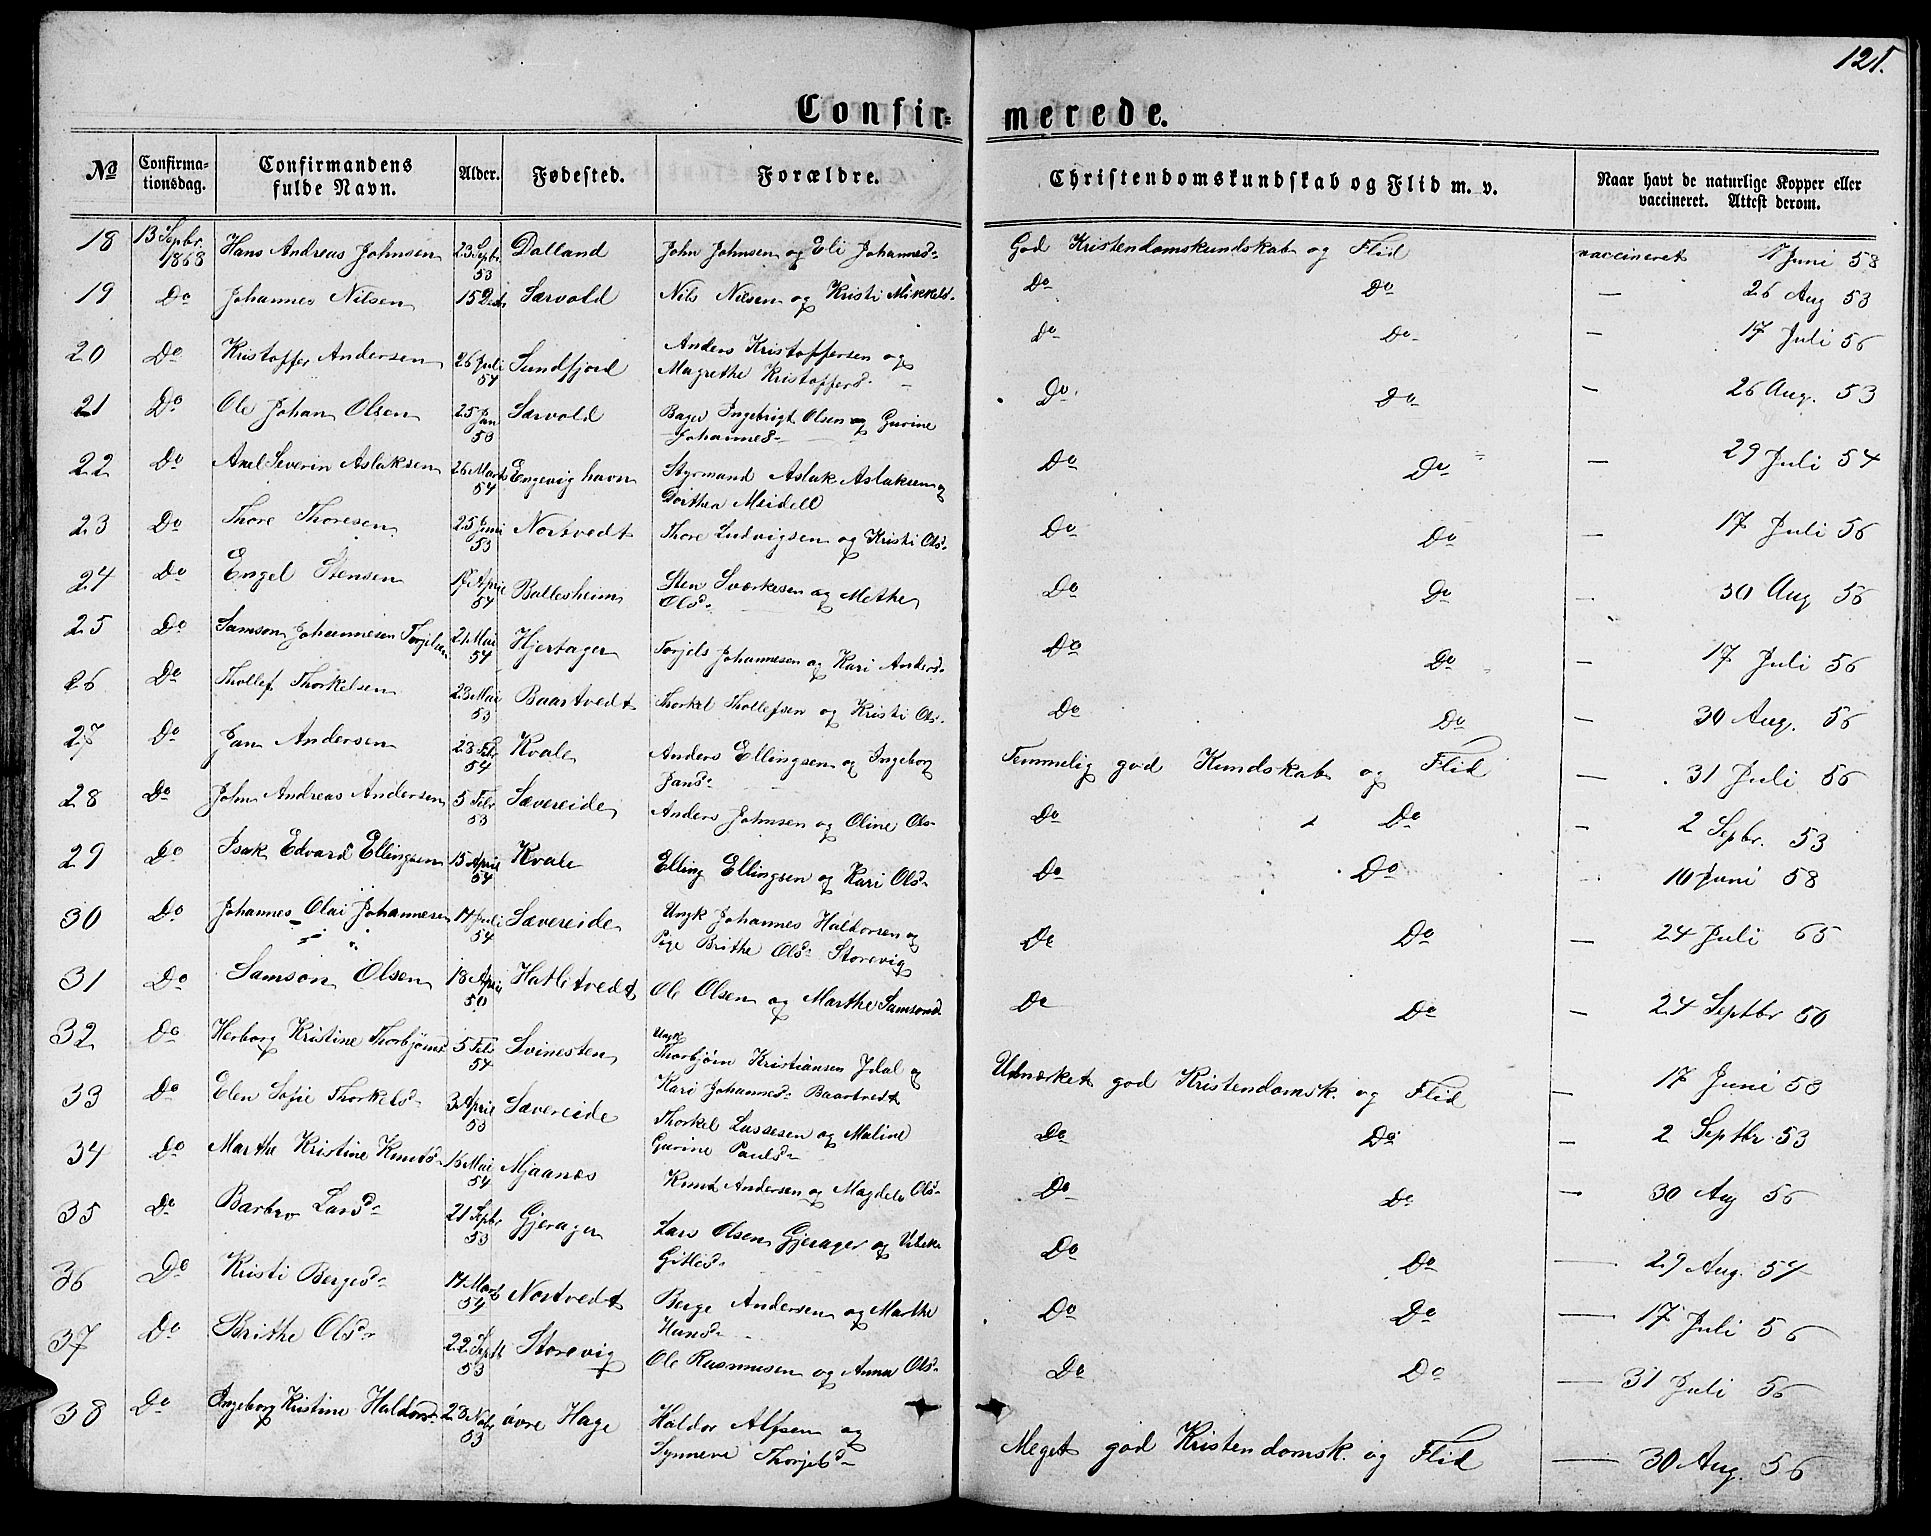 121.
Confir-merede.
No Confirma-tionsdag. Confirmandens fulde Navn. Alder. Fødested. Forældre. Christendomskundskab og Flid m. v. Naar havt de naturlige Kopper eller vaccineret. Attest derom.
18 13 Sepbr. 1868 Hans Andreas Johnsen 23 Sepbr. 53 Dalland John Johnsen og Eli Johannesd. God Kristendomskundskab og Flid vaccineret 1 Juni 58
19 Do Johannes Nilsen 15 Særvold Nils Nilsen og Kristi Mikkelsd. Do Do — 26 Aug 53
20 Do Kristoffer Andersen 26 Juli 54 Sundfjord Anders Kristoffersen og Magrethe Kristoffersd. Do Do — 17 Juli 56
21 Do Ole Johan Olsen 25 Jan 53 Særvold Bager Ingebrigt Olsen og Gurine Johannesd. Do Do — 26 Aug. 53
22 Do Axel Severin Aslaksen 26 Marts 54 Engevighavn Styrmand Aslak Aslaksen og Dorthea Meidell Do Do — 29 Juli 54
23 Do Thore Thoresen 25 Juni 53 Nortvedt Thore Ludvigsen og Kristi Olsd. Do Do — 17 Juli 56
24 Do Engel Stensen 17 April 54 Ballesheim Sten Sværkesen og Methe Olsd. Do Do 30 Aug 56
25 Do Samson Johannesen Torjelsen 21 Mai 54 Hjertager Torjels Johannesen og Kari Andersd. Do Do — 17 Juli 56
26 Do Thollef Thorkelsen 23 Mai 53 Baartvedt Thorkel Thollefsen og Kristi Ols. Do Do — 30 Aug. 56
27 Do Jan Andersen 28 Febr 54 Kvale Anders Ellingsen og Ingeborg Jansd. Temmelig god Kundskab og Flid — 31 Juli 56
28 Do John Andreas Andersen 5 Febr 53 Sævereide Anders Johnsen og Oline Ols. Do Do — 2 Sepbr. 53
29 Do Isak Edvard Ellingsen 15 April 54 Kvale Elling Ellingsen og Kari Olsd. Do Do 10 Juni 58
30 Do Johannes Olai Johannesen 17 Juli 54 Sævereide Ungk Johannes Haldorsen og Pige Brithe Olsd. Storevig Do Do — 24 Juli 65
31 Do Samson Olsen 18 April 50 Hatletvedt Ole Olsen og Marthe Samsonsd. Do Do — 24 Septbr 50
32 Do Herborg Kristine Thorbjørnsd. 5 Feb 54 Svinesten Ungk Thorbjørn Kristiansen Idal og Kari Johannesd. Baartvedt Udmærket god Kristendomsk. og Flid — 17 Juni 58
33 Do Elen Sofie Thorkelsd. 3 April 53 Sævereide Thorkel Lassesen og Maline Gurine Paulsd. Do Do — 2 Septbr 53
34 Do Marthe Kristine Knutsd. 15 Mai 54 Mjaanes Knut Andersen og Magdele Olsd. Do Do — 30 Aug 56
35 Do Barbro Larsd. 21 Sepbr 53 Gjerager Lars Olsen Gjerager og Gitlesd. Do Do — 29 Aug. 54
36 Do Kristi Bergesd. 17 Marts 54 Nortvedt Berge Andersen og Marthe Hansd. Do Do — 17 Juli 56
37 Do Brithe Olsd. 22 Septb 53 Storevig Ole Rasmusen og Anna Olsd. Do Do — 31 Juli 56
38 Do Ingeborg Kristine Haldorsd. 23 Nobr 53 øvre Hage Haldor Alfsen og Synneve Thorjelsd. Meget god Kristendomsk. og Flid — 30 Aug. 56